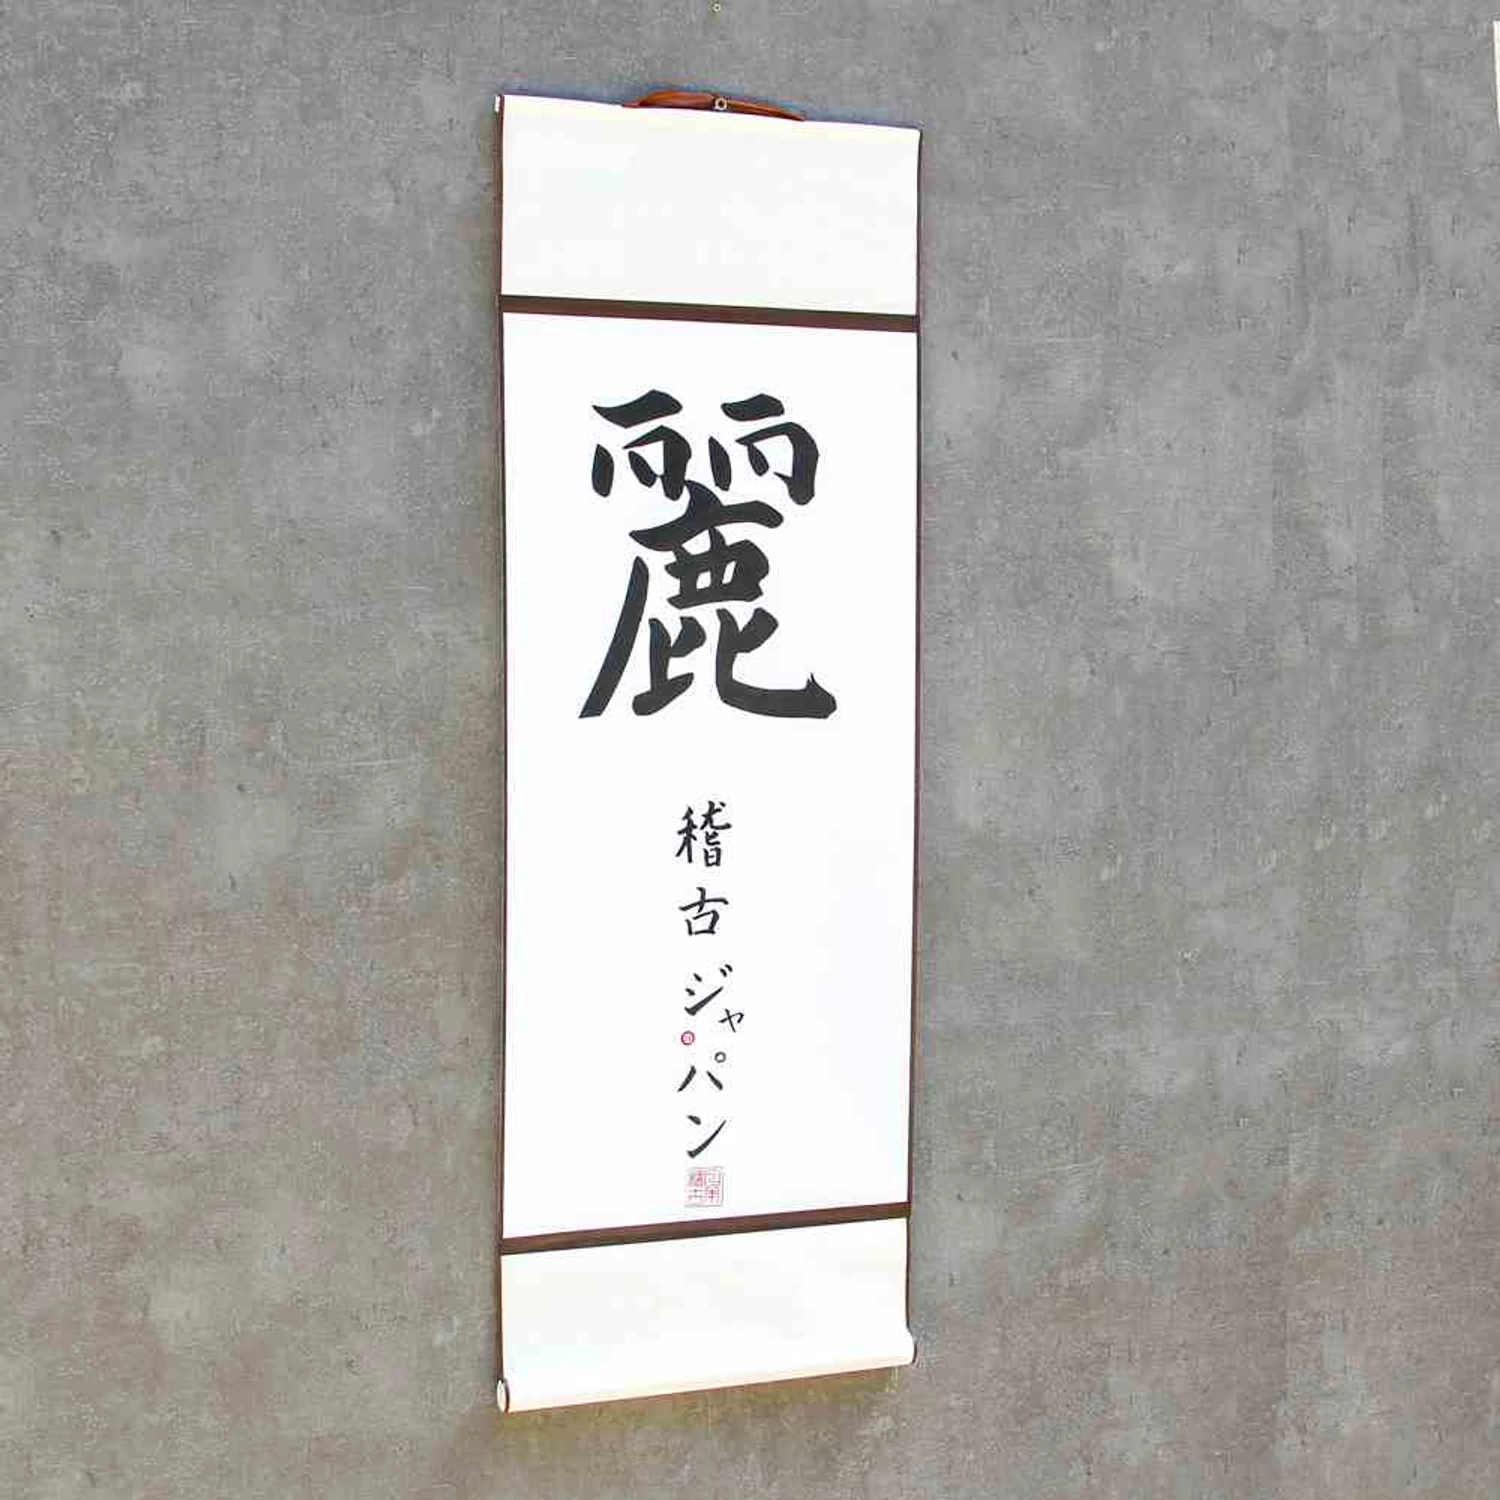 麗
稽古ジャパン